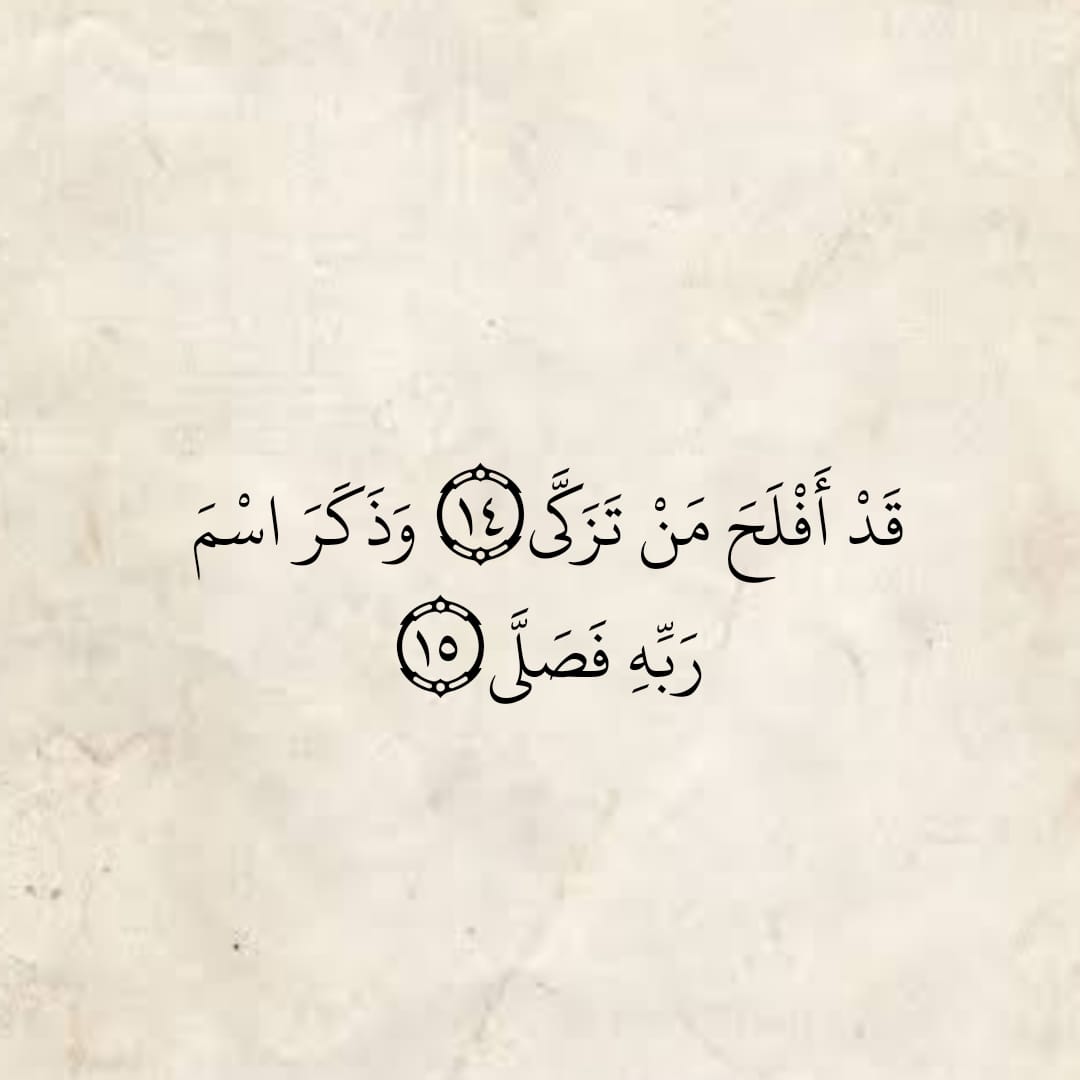 قَدْ أَفْلَحَ مَنْ تَزَكَّى ١٤ وَذَكَرَ اسْمَ
رَبِّهِ فَصَلَّى ١٥